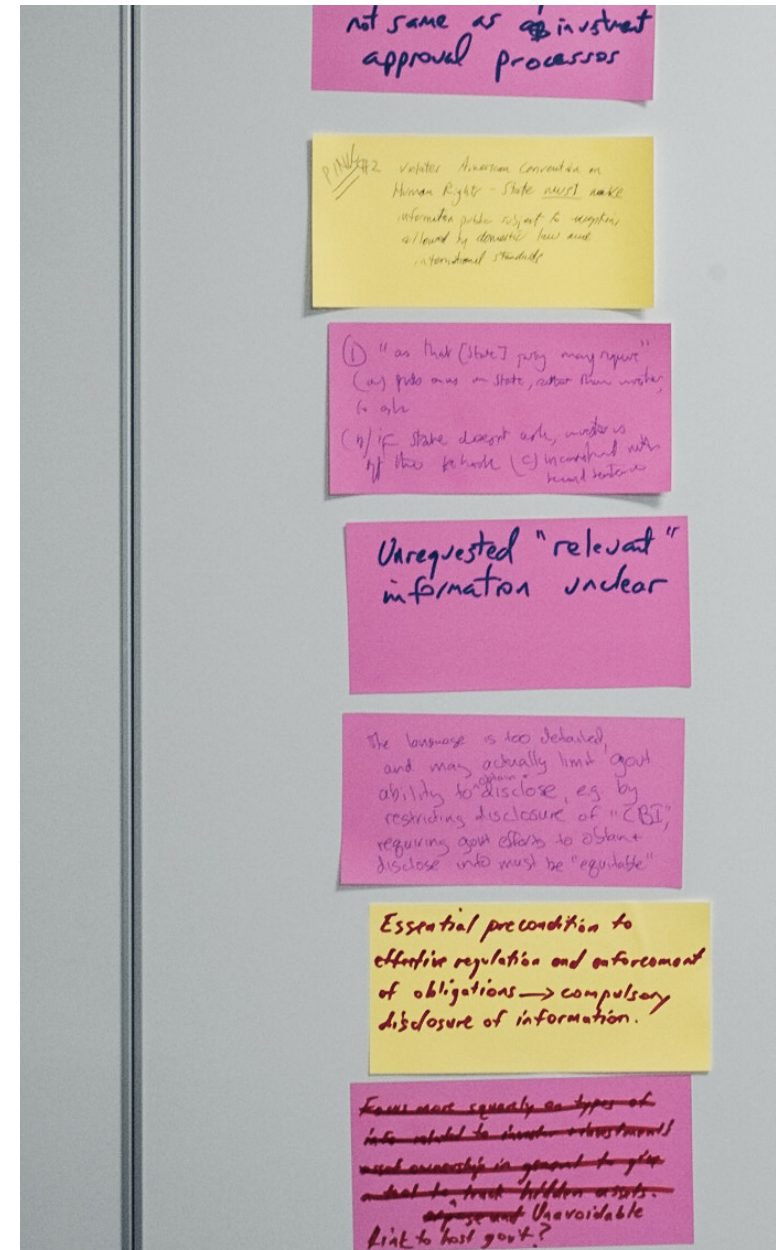 not same as investment
approval processos
PINK #2 violates American Convention on
Human Rights - State must make
information public subject to exceptions
allowed by domestic law and
international standards
(1) "as that [State] party may require"
(a) puts onus on State, rather than investor,
to ask
(b) if state doesn't ask, investor is
off the hook (c) inconsistent with
second sentence
Unrequested "relevant"
information unclear
The language is too detailed,
and may actually limit govt
ability to obtain + disclose, eg. by
restricting disclosure of "CBI,"
requiring govt efforts to obtain +
disclose info must be "equitable"
Essential precondition to
effective regulation and enforcement
of obligations → compulsory
disclosure of information.
Focus more squarely on types of
info related to investor + investments
asset ownership in general to give
a tool to track hidden assets.
Unavoidable
link to host govt?